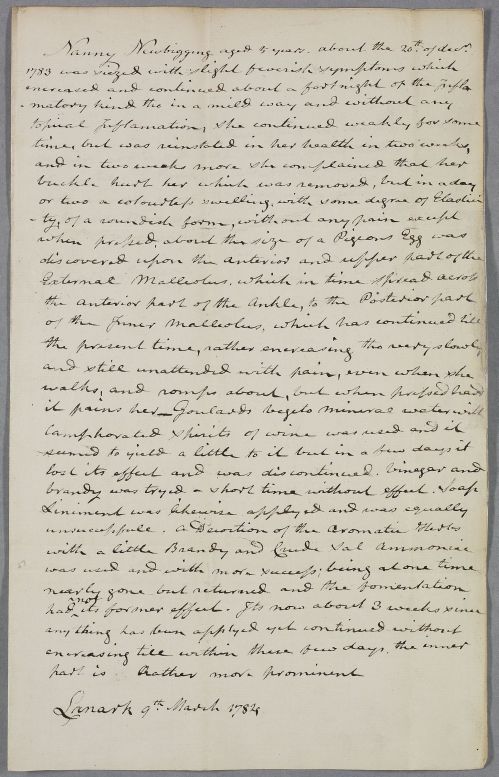 Nanny Newbigging aged 5 years. about the 20th of decr.
1783 was siezed with slight feverish symptoms which
encreased and continued about a fortnight of the Infla
-matory kind tho in a mild way and without any
topical Inflamation, She continued weakly for some
time, but was reinstated in her health in two weeks,
and in two weeks more she complained that her
buckle hurt her which was removed, but in a day
or two a colourless swelling, with some degree of Elastici
-ty, of a roundish form, without any pain except
when pressed, about the size of a Pigeons Egg was
discovered upon the anterior and upper part of the
External Malleolus, which in time spread across
the anterior part of the Ankle, to the Posterior part
of the Inner Malleolus, which has continued till
the present time, rather encreasing tho very slowly
and still unattended with pain, even when she
walks, and romps about, but when pressed hard
it pains her_ Goulards vegeto mineral water with
Camphorated spirits of wine was used and it
seemed to yield a little to it but in a few days it
lost its effect and was discontinued. Vinegar and
brandy was tryed a short time without effect. Soap
Liniment was likewise applyed and was equally
unsuccessfull. a Decoction of the Aromatic Herbs
with a little Brandy and Crude Sal Ammoniac
was used and with more success; being at one time
nearly gone but returned and the fomentation
had not its former effect. Its now about 3 weeks since
any thing has been applyed yet continued without
encreasing till within these few days, the inner
part is rather more prominent
Lanark 9th March 1784